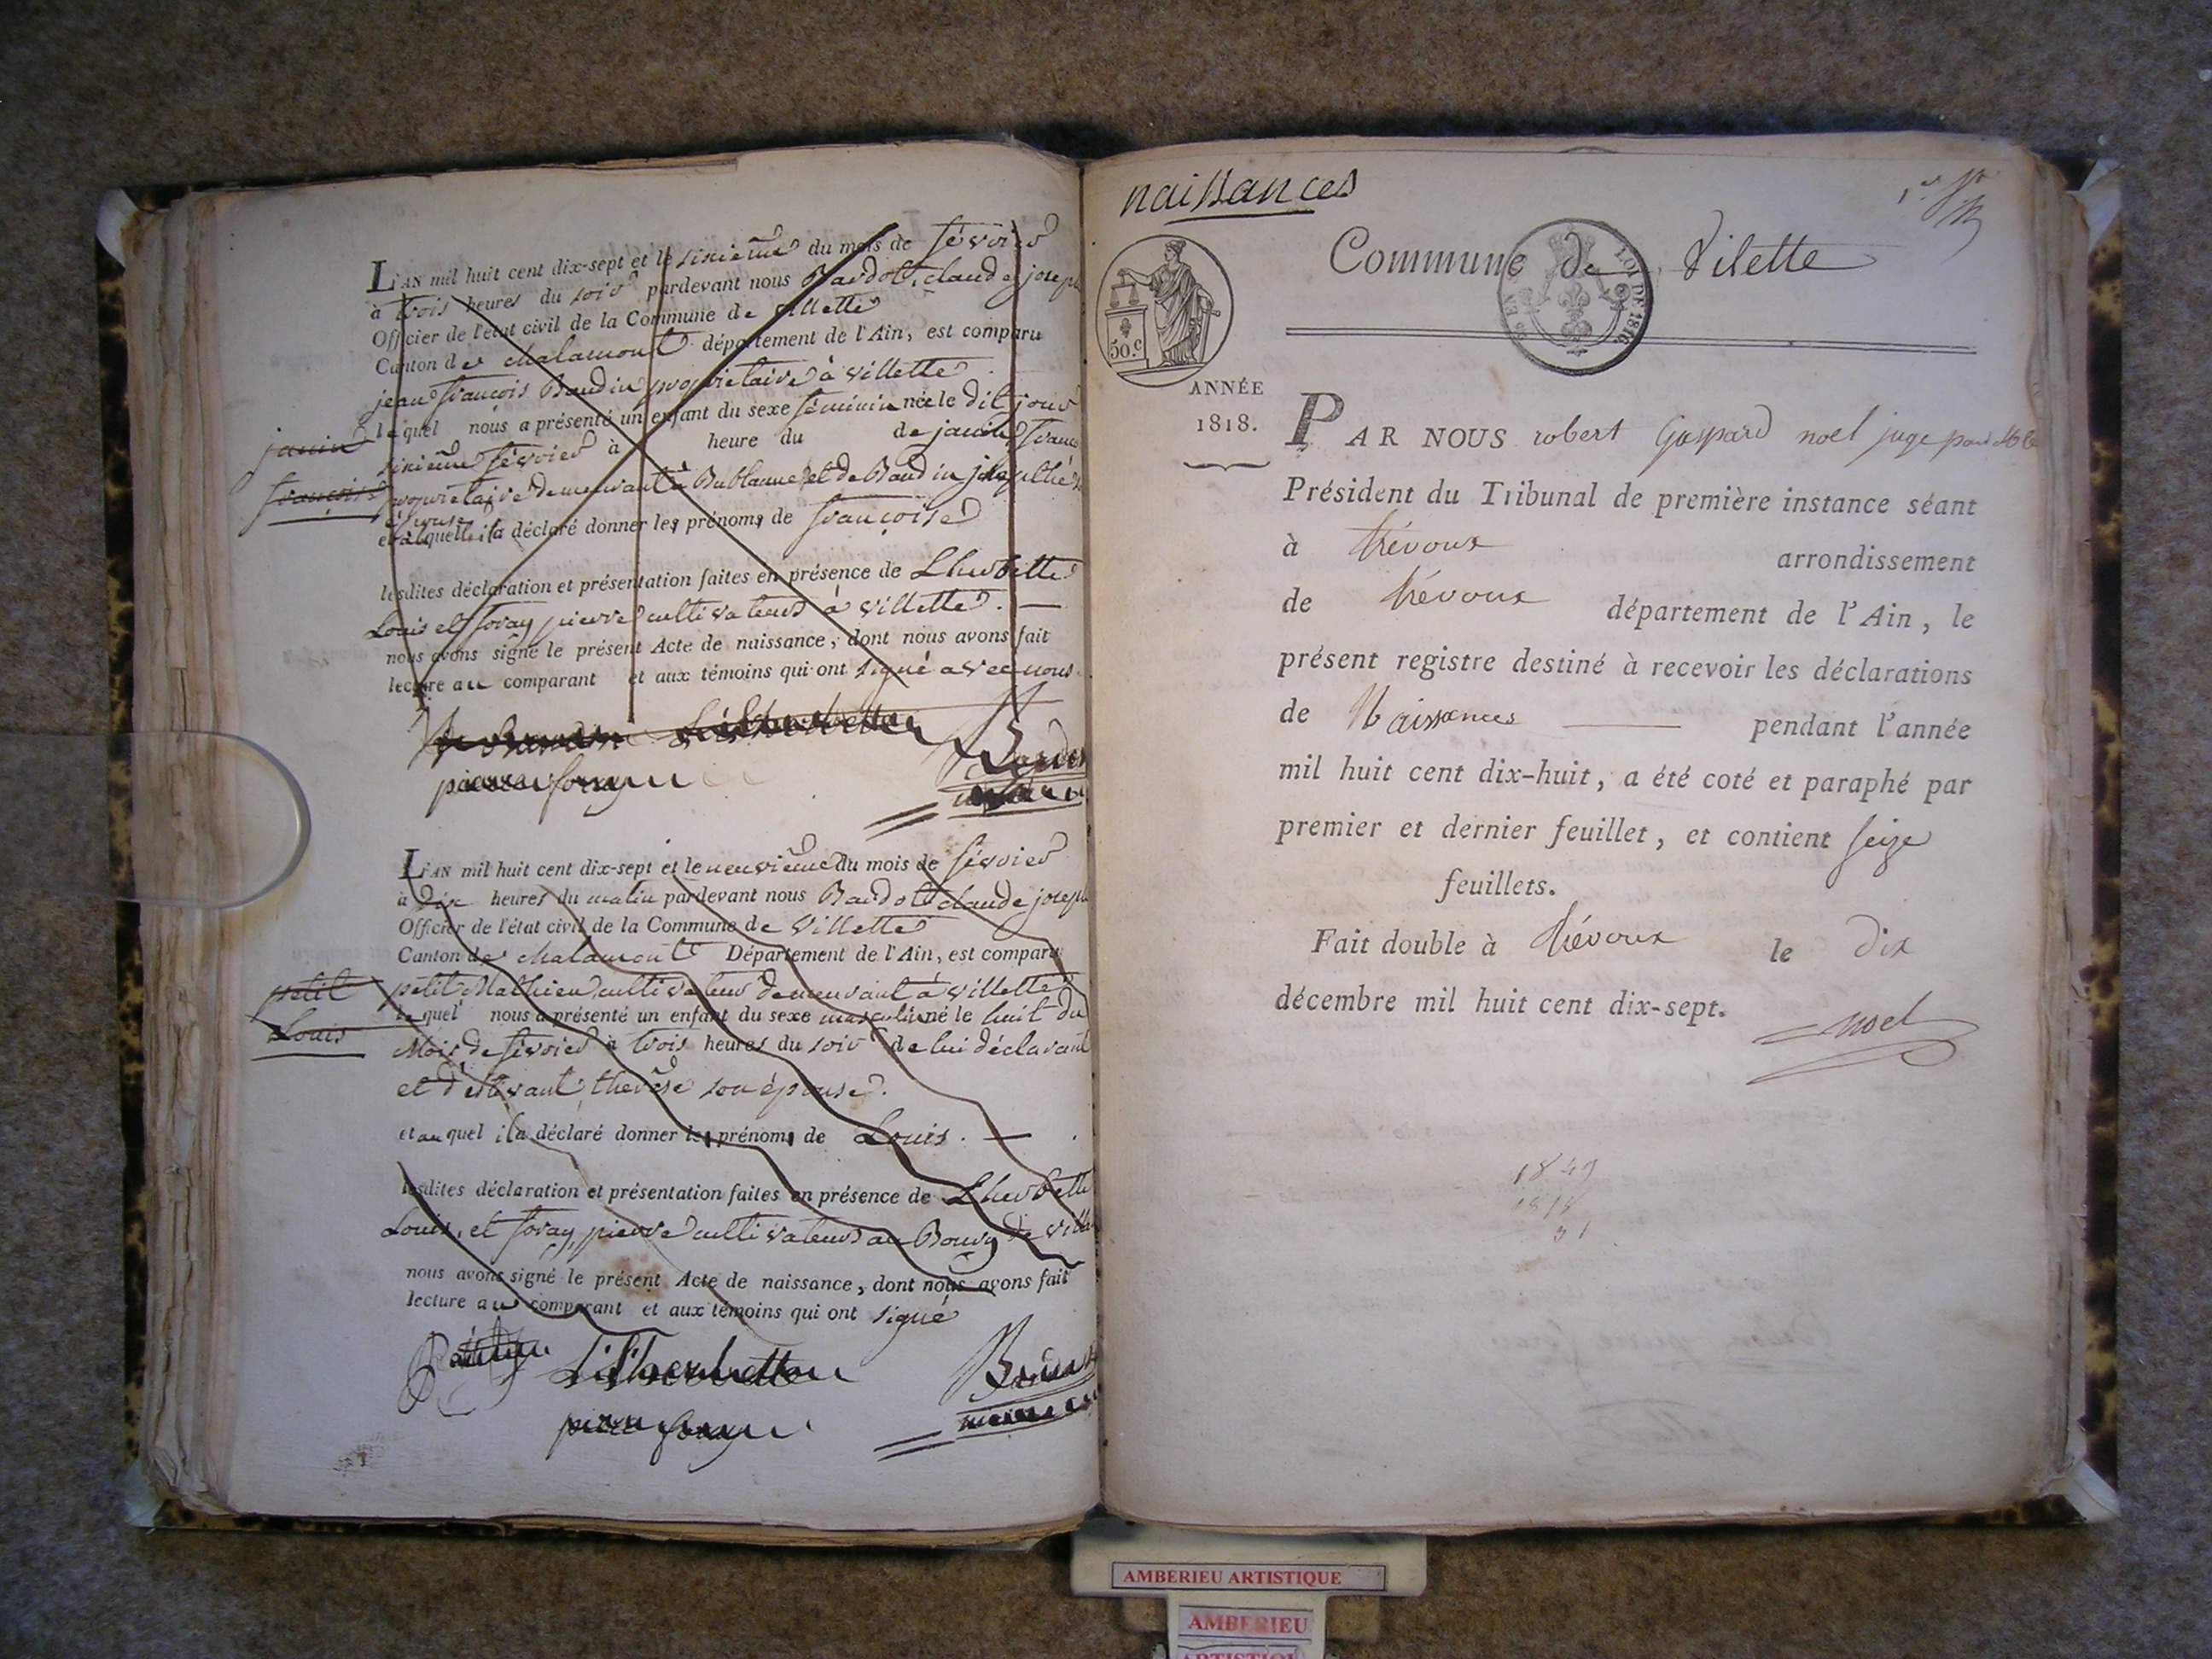 L'AN mil huit cent dix-sept et le sixieme du mois de février
à trois heures du soir pardevant nous Bardot, claude joseph
Officier de l'état civil de la Commune de villette
Canton de chalamont département de l'Ain, est comparu
jean françois Baudin propriétaire à villette
lequel nous a présenté un enfant du sexe féminin née le dit jour
janin
sixième février à heure du de janin
françoise
propriétaire demeurant à Bublanne et de Baudin
épouse
et à laquelle il a déclaré donner les prénoms de françoise
lesdites déclaration et présentation faites en présence de Lherbette
Louis et foray pierre cultivateurs à villette. —
nous avons signé le présent Acte de naissance, dont nous avons fait
lecture au comparant et aux témoins qui ont signé avec nous.
L'AN mil huit cent dix-sept et le neuvième du mois de février
à dix heures du matin pardevant nous Bardot claude joseph
Officier de l'état civil de la Commune de villette
Canton de chalamont Département de l'Ain, est comparu
petit
petit Mathieu cultivateur demeurant à villette
lequel nous a présenté un enfant du sexe masculin né le huit du
Louis
Mois de février à trois heures du soir de lui déclarant
et d'estivant therèse son épouse.
et auquel il a déclaré donner les prénoms de Louis. —
lesdites déclaration et présentation faites en présence de Lherbette
Louis, et foray, pierre cultivateurs au Bourg de
nous avons signé le présent Acte de naissance, dont nous avons fait
lecture au comparant et aux témoins qui ont signé
naissances
1er
Commune de Vilette
LOI DE 1816
50.c
ANNÉE
1818.
PAR NOUS robert Gaspard noel juge pour
Président du Tribunal de première instance séant
à trévoux arrondissement
de trévoux département de l'Ain, le
présent registre destiné à recevoir les déclarations
de Naissances pendant l'année
mil huit cent dix-huit, a été coté et paraphé par
premier et dernier feuillet, et contient seize
feuillets.
Fait double à trévoux le dix
décembre mil huit cent dix-sept.
noel
1849
1818
31
AMBERIEU ARTISTIQUE
AMBERIEU
ARTISTIQU